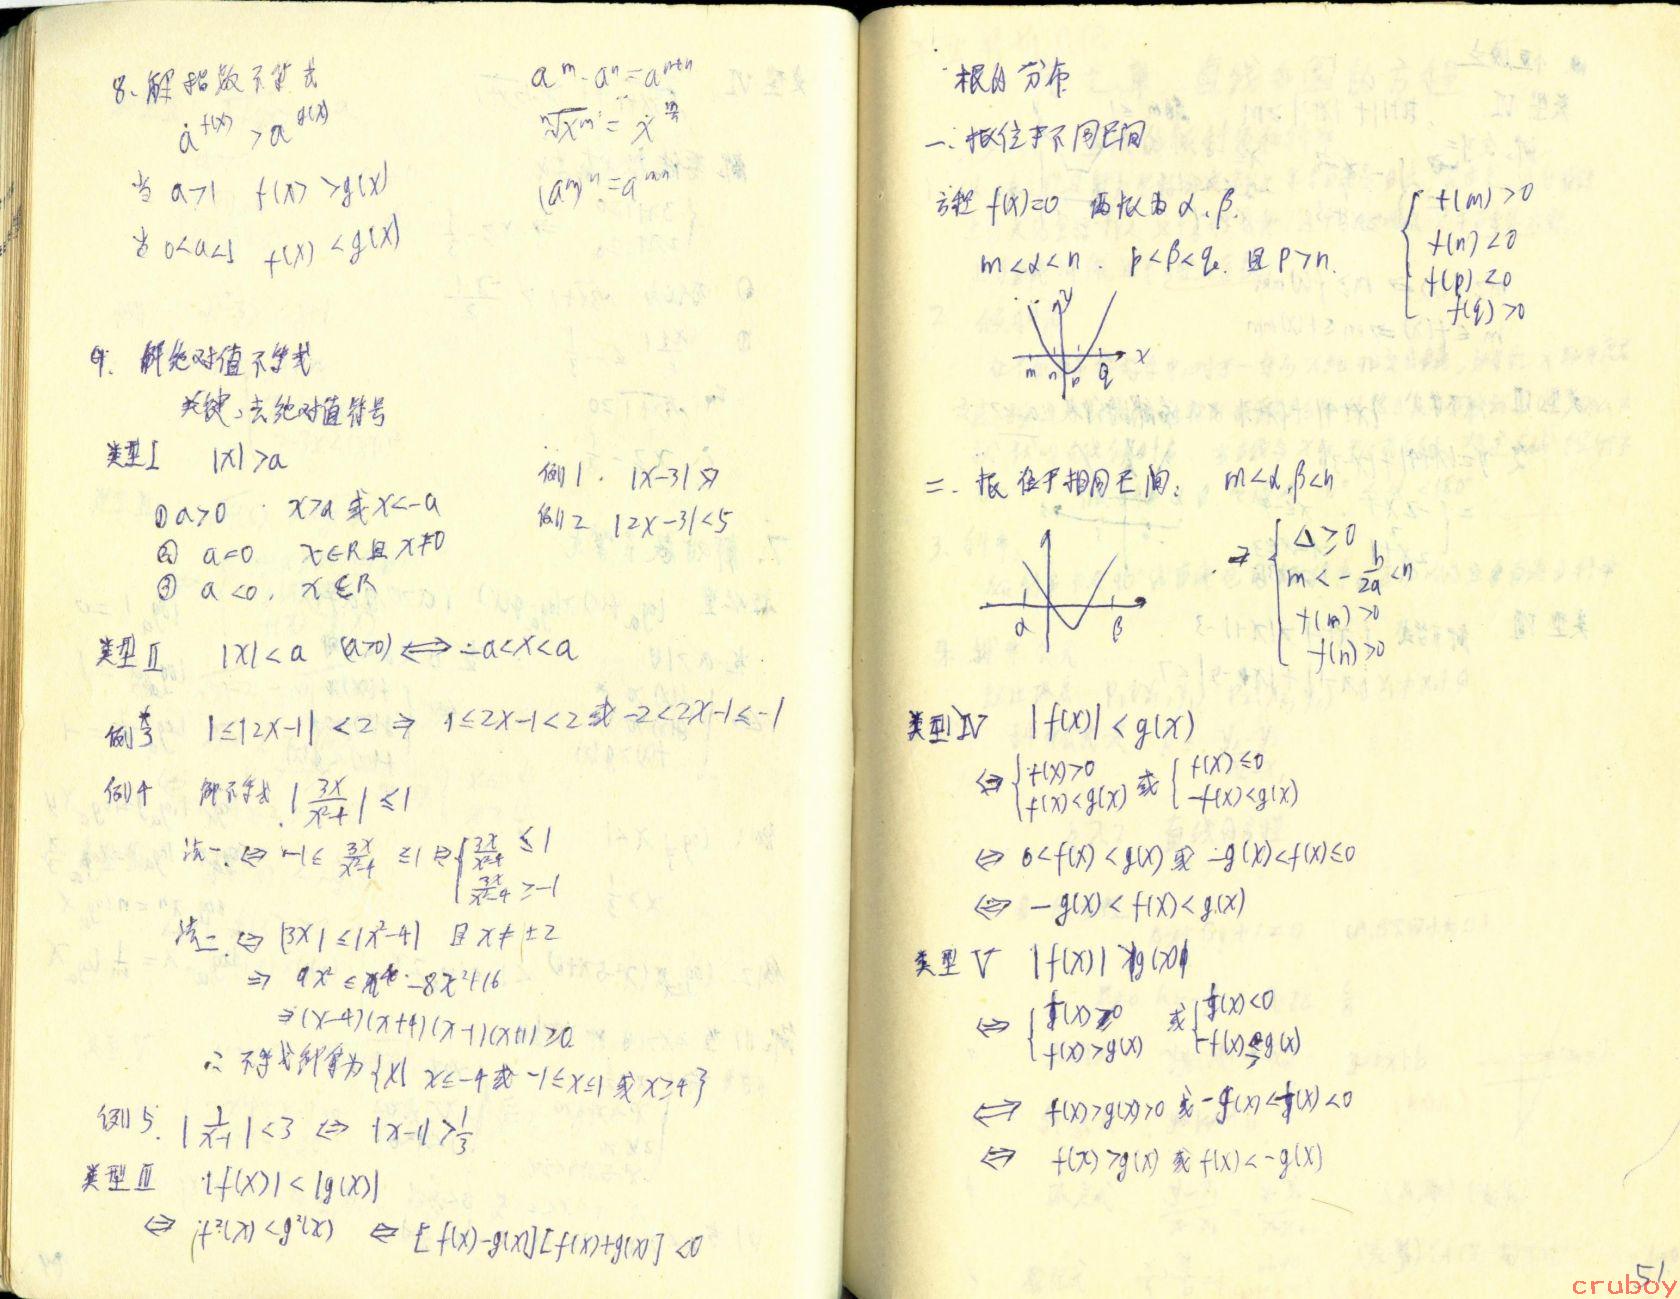 8、解指数不等式
a^f(x) > a^g(x)
当 a>1 f(x)>g(x)
当 0<a<1 f(x)<g(x)
a^m·a^n=a^(m+n)
ⁿ√x^m = x^(m/n)
(a^m)^n=a^mn
9. 解绝对值不等式
关键:去绝对值符号
类型Ⅰ |x|>a
① a>0 x>a 或 x<-a
② a=0 x∈R且x≠0
③ a<0, x∈R
例1. |x-3|>
例2 |2x-3|<5
类型Ⅱ |x|<a (a>0) ⟺ -a<x<a
例3 1≤|2x-1|<2 ⇒ 1≤2x-1<2 或 -2<2x-1≤-1
例4 解不等式 |3x/(x²-4)|≤1
法一. ⇔ -1≤ 3x/(x²-4) ≤1 ⇔ { 3x/(x²-4) ≤1
3x/(x²-4) ≥-1
法二. ⇔ |3x|≤|x²-4| 且 x≠±2
⇒ 9x²≤x⁴-8x²+16
⇒(x-4)(x+4)(x-1)(x+1)≥0
∴ 不等式解集为{x| x≤-4或 -1≤x≤1 或 x≥4}
例5. |1/(x-1)|<3 ⇔ |x-1|>1/3
类型Ⅲ |f(x)|<|g(x)|
⇔ f²(x)<g²(x) ⇔ [f(x)-g(x)][f(x)+g(x)]<0
根的分布
一. 根位于不同区间
方程 f(x)=0 两根为α、β.
m<α<n. p<β<q. 且p>n.
{ f(m)>0
f(n)<0
f(p)<0
f(q)>0
y
m n p q x
二. 根位于相同区间: m<α,β<n
α β
⇒ { Δ≥0
m<-b/2a<n
f(m)>0
f(n)>0
类型Ⅳ |f(x)|<g(x)
⇔ { f(x)>0 或 { f(x)≤0
f(x)<g(x) -f(x)<g(x)
⇔ 0<f(x)<g(x) 或 -g(x)<f(x)≤0
⇔ -g(x)<f(x)<g(x)
类型Ⅴ |f(x)|>g(x)
⇔ { f(x)≥0 或 { f(x)<0
f(x)>g(x) -f(x)>g(x)
⟺ f(x)>g(x)>0 或 -g(x)<f(x)<0
⇔ f(x)>g(x) 或 f(x)<-g(x)
51
cruboy